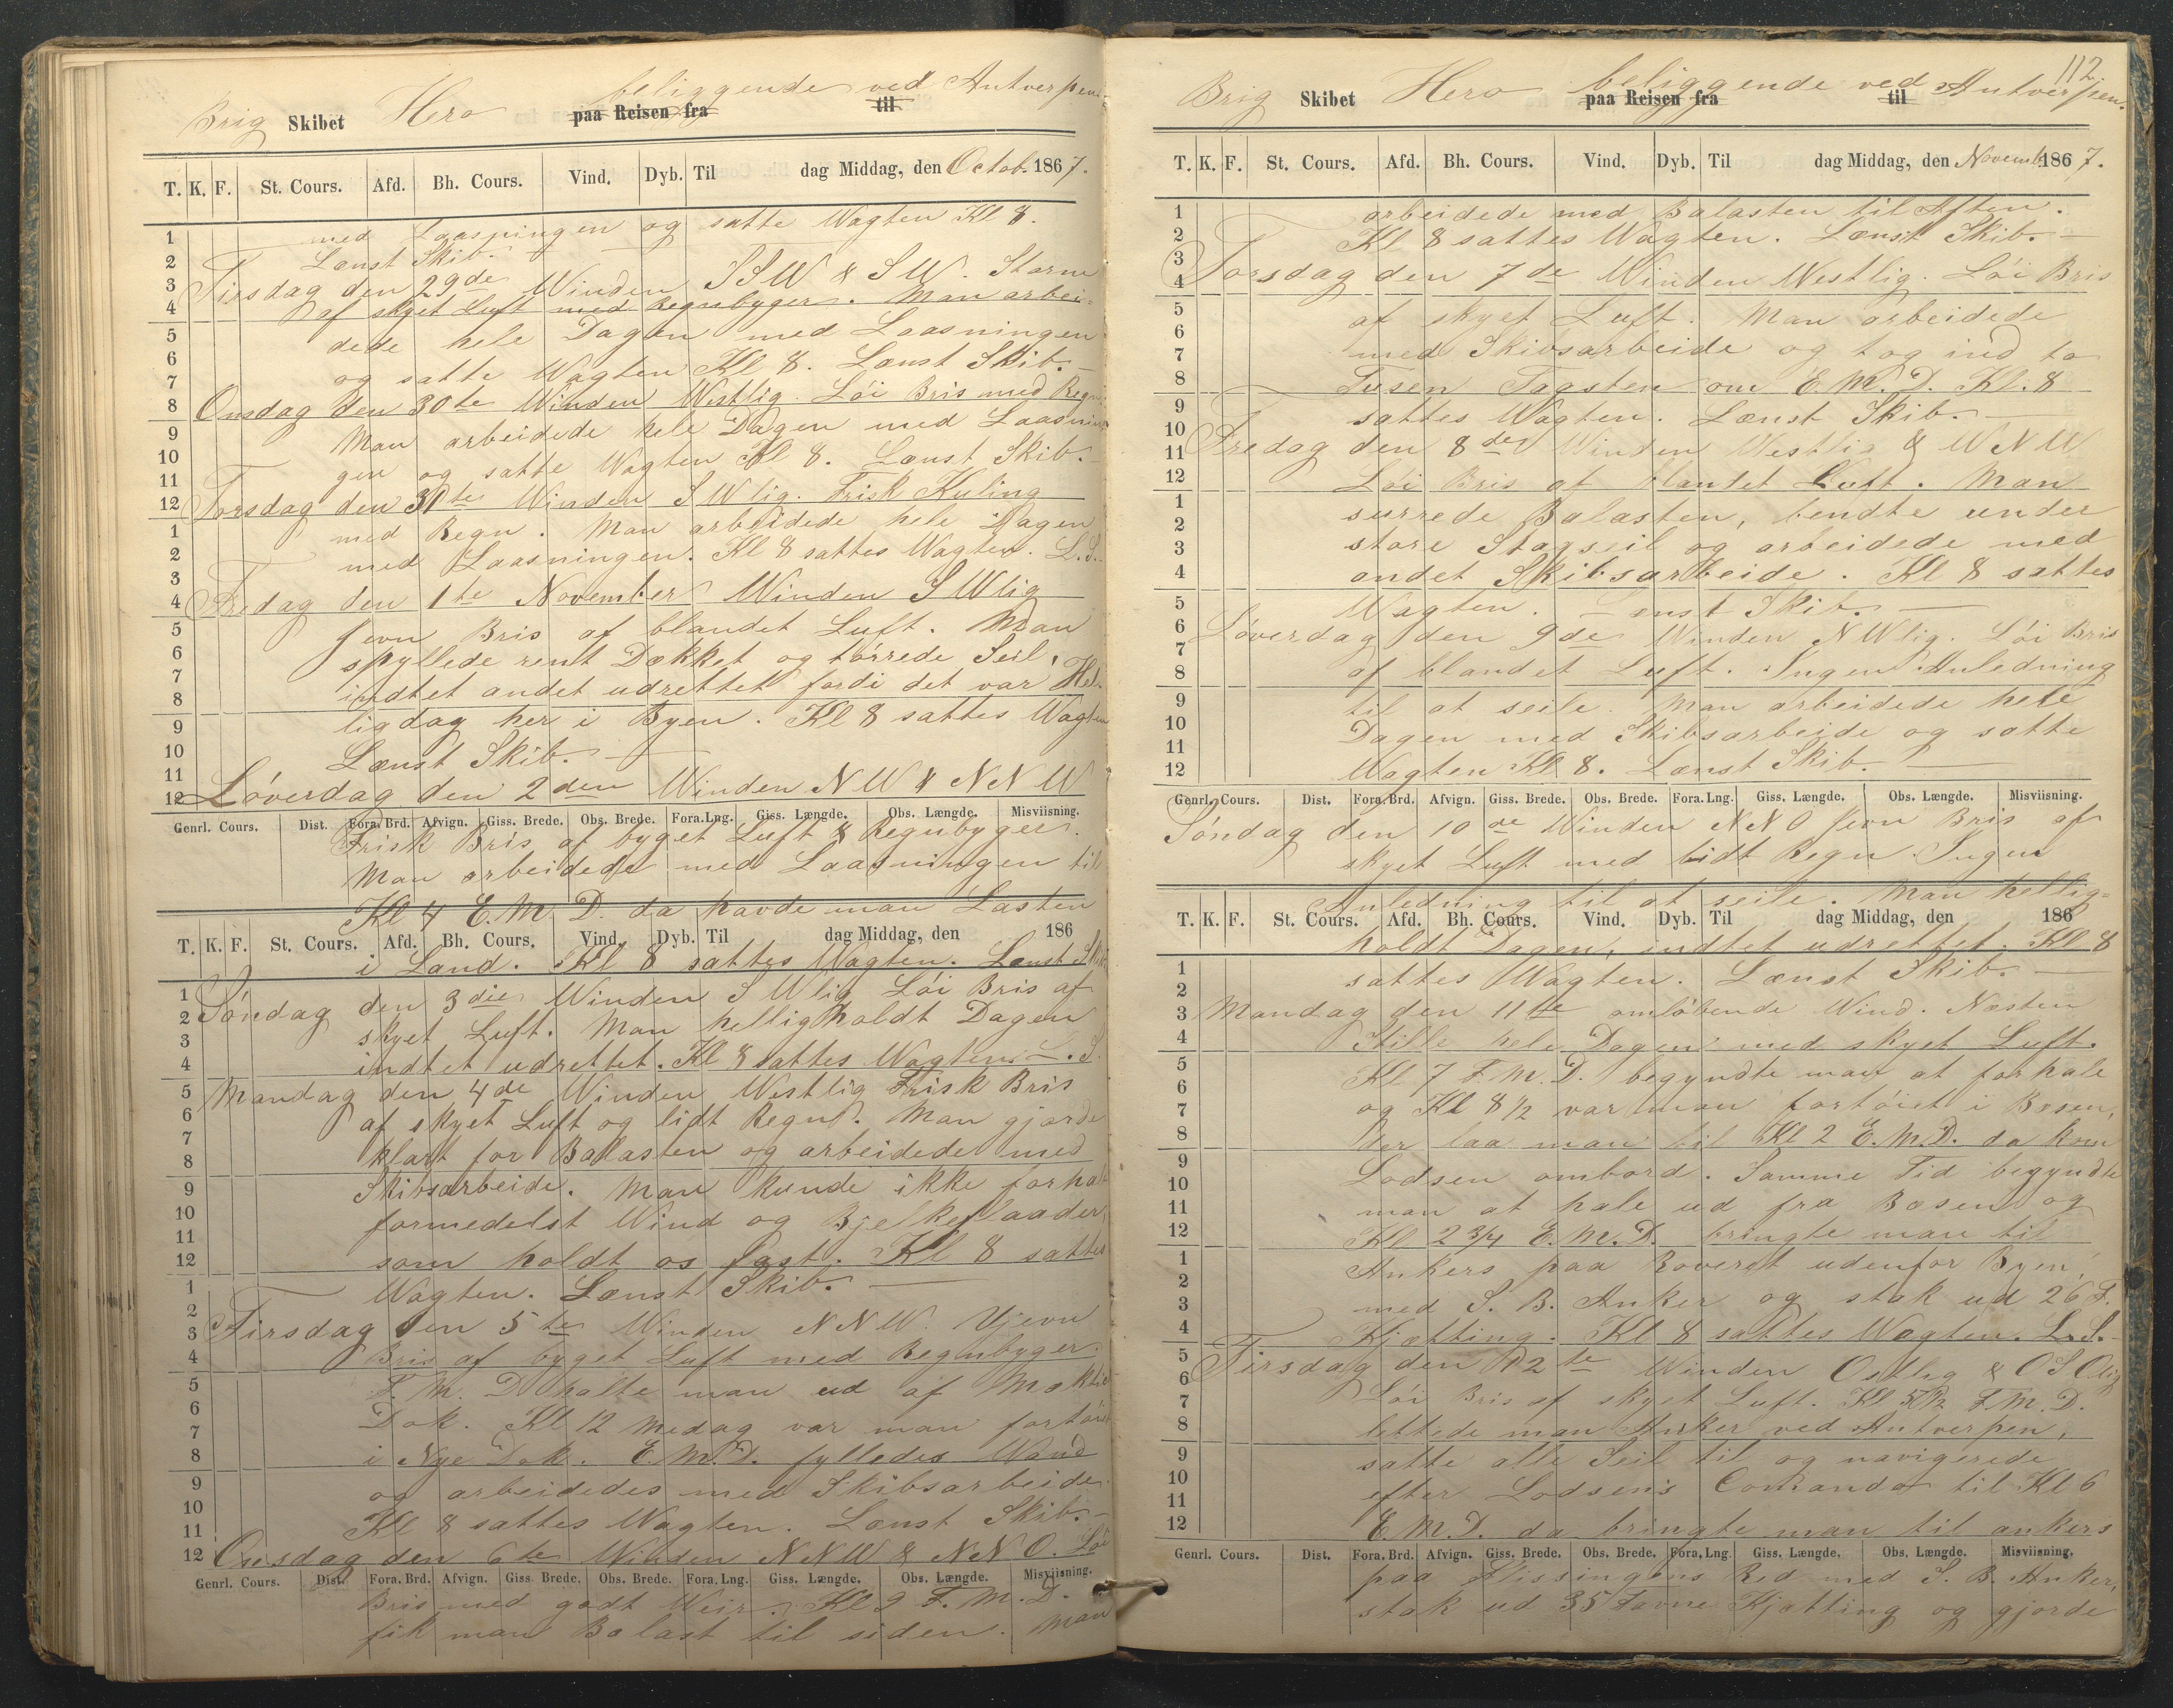 Brig Skibet Hero beliggende ved Antverpen
paa Reisen fra til
T. K. F. St. Cours. Afd. Bh. Cours. Vind. Dyb. Til dag Middag, den Octob. 1867.
med Laasningen og satte Wagten Kl 8.
Lænst Skib.
Tirsdag den 29de Winden SSW & SW. Storm
af skyet Luft med Regnbyger. Man arbei-
dede hele Dagen med Laasningen
og satte Wagten Kl 8. Lænst Skib.
Onsdag den 30te Winden Westlig. Löi Bris med Regn
Man arbeidede hele Dagen med Laasnin
gen og satte Wagten Kl 8. Lænst Skib.
Torsdag den 31te Winden SWlig. Frisk Kuling
med Regn. Man arbeidede hele Dagen
med Laasningen. Kl 8 sattes Wagten. L.S.
Fredag den 1te November Winden SWlig
Jevn Bris af blandet Luft. Man
spyllede rent Dækket og törrede Seil,
indtet andet udrettet fordi det var Hel-
ligdag her i Byen. Kl 8 sattes Wagten
Lænst Skib.
Löverdag den 2den Winden NW & NNW
Genrl. Cours. Dist. Fora. Brd. Afvign. Giss. Brede. Obs. Brede. Fora. Lng. Giss. Længde. Obs. Længde. Misviisning.
Frisk Bris af byget Luft & Regnbyger.
Man arbeidede med Laasningen til
Kl 4 E.M.D. da havde man Lasten
T. K. F. St. Cours. Afd. Bh. Cours. Vind. Dyb. Til dag Middag, den 186
i Land. Kl 8 sattes Wagten. Lænst Skib
Söndag den 3die Winden SWlig Löi Bris af
skyet Luft. Man helligholdt Dagen
indtet udrettet. Kl 8 sattes Wagten. L.S.
Mandag den 4de Winden Westlig Frisk Bris
af skyet Luft og lidt Regn. Man gjorde
klart for Balasten og arbeidede med
Skibsarbeide. Man kunde ikke forhale
formedelst Wind og Bjelkeflaader,
som holdt os fast. Kl 8 sattes
Wagten. Lænst Skib.
Tirsdag den 5te Winden NNW. Ujevn
Bris af byget Luft med Regnbyger.
F.M.D halte man ud af
Dok. Kl 12 Medag var man fortöiet
i Nye Dok. E.M.D. fylledes Wand
og arbeidedes med Skibsarbeide.
Kl 8 sattes Wagten. Lænst Skib.
Onsdag den 6te Winden NNW & NNO. Löi
Genrl. Cours. Dist. Fora. Brd. Afvign. Giss. Brede. Obs. Brede. Fora. Lng. Giss. Længde. Obs. Længde. Misviisning.
Bris med godt Weir. Kl 9 F.M.D.
fik man Balast til siden. Man
112
Brig Skibet Hero beliggende ved Antverpen.
paa Reisen fra til
T. K. F. St. Cours. Afd. Bh. Cours. Vind. Dyb. Til dag Middag, den Novemb. 1867.
arbeidede med Balasten til Aften.
Kl 8 sattes Wagten. Lænst Skib.
Torsdag den 7de Winden Westlig. Löi Bris
af skyet Luft. Man arbeidede
med Skibsarbeide og tog ind to
Tusen Tagsten om E.M.D. Kl. 8
sattes Wagten. Lænst Skib.
Fredag den 8de Winden Westlig & WNW
Löi Bris af blandet Luft. Man
surrede Balasten, bendte under
store Stagseil og arbeidede med
andet Skibsarbeide. Kl 8 sattes
Wagten. Lænst Skib.
Löverdag den 9de Winden NWlig. Löi Bris
af blandet Luft. Ingen Anledning
til at seile. Man arbeidede hele
Dagen med Skibsarbeide og satte
Wagten Kl 8. Lænst Skib.
Genrl. Cours. Dist. Fora. Brd. Afvign. Giss. Brede. Obs. Brede. Fora. Lng. Giss. Længde. Obs. Længde. Misviisning.
Söndag den 10de Winden NNO Jevn Bris af
skyet Luft med lidt Regn. Ingen
Anledning til at seile. Man hellig-
T. K. F. St. Cours. Afd. Bh. Cours. Vind. Dyb. Til dag Middag, den 186
holdt Dagen, indtet udrettet. Kl 8
sattes Wagten. Lænst Skib.
Mandag den 11te omlöbende Wind. Næsten
Stille hele Dagen med skyet Luft.
Kl 7 F.M.D. begyndte man at forhale
og Kl 8 1/2 var man fortöiet i Basen,
der laa man til Kl 2 E.M.D. da kom
Lodsen ombord. Samme Tid begyndte
man at hale ud fra Basen og
Kl 2 3/4 E.M.D. bringte man til
Ankers paa Reveret udenfor Byen,
med S.B. Anker og stak ud 26 F.
Kjætting. Kl 8 sattes Wagten. L.S.
Tirsdag den 12te Winden Ostlig & OSOlig
Löi Bris af skyet Luft. Kl F.M.D.
lettede man Anker ved Antverpen,
satte alle Seil til og navigerede
efter Lodsens Comando til Kl 6
E.M.D. da bringte man til ankers
paa Flissingens Red med S.B. Anker,
stak ud 35 Favne Kjætting og gjorde
Genrl. Cours. Dist. Fora. Brd. Afvign. Giss. Brede. Obs. Brede. Fora. Lng. Giss. Længde. Obs. Længde. Misviisning.